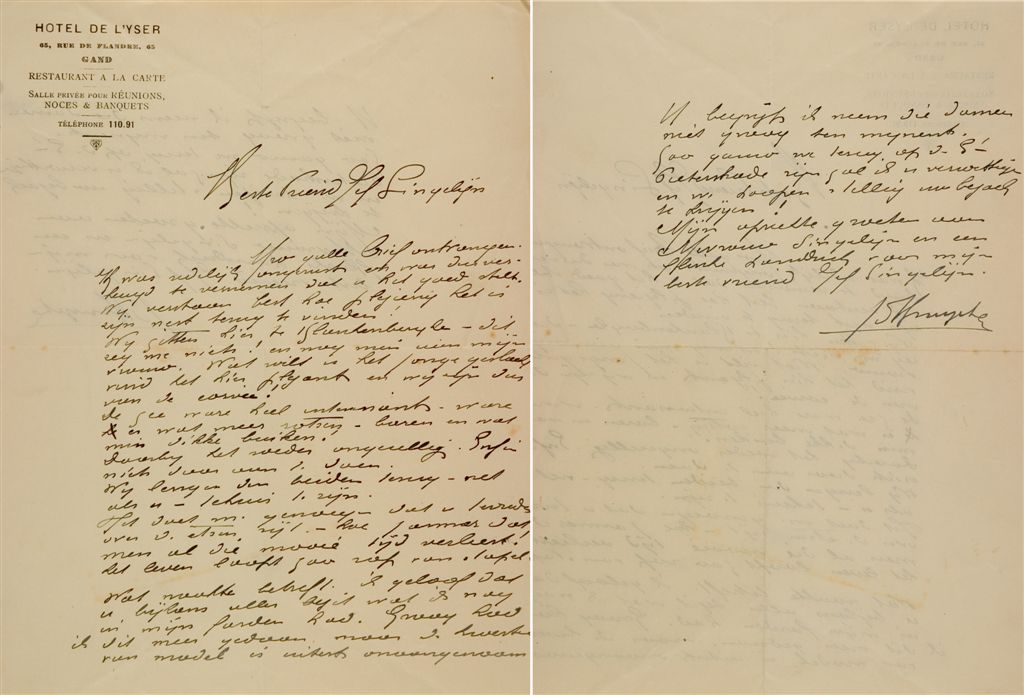 HOTEL DE L'YSER
65, RUE DE FLANDRE, 65
GAND
RESTAURANT A LA CARTE
SALLE PRIVÉE POUR RÉUNIONS,
NOCES & BANQUETS
TÉLÉPHONE 110.91
Beste Vriend Jef Singelijn
Uw brief ontvangen.
Ik was en was dus ver-
heugd te vernemen dat u het goed stelt.
Wij verstaan best hoe het is
zijn nest terug te vinden!
Wij zitten hier te Blankenberghe - dit
zeg me niets! en nog min aan mijn
vrouw. Wat wilt u het jonge geslacht
vind het hier plezant en wij zijn dus
van de corvée!
De zee ware heel intéressant - ware
er wat meer rotsen - baren en wat
min dikke buiken!
Daarbij het weder ongunstig. Enfin
niets daar aan te doen.
Wij beiden terug - net
als u - tehuis te zijn.
Het doet m. genoegen dat u tevreden
over d. etsen zijt. - hoe jammer dat
men al die mooie tijd verliest!
het leven loopt zoo rap van stapel
Wat naakte betreft. ik geloof dat
u bijkans alles bezit wat ik nog
in mijn had. Graag had
ik dit meer gedaan maar de kwestie
van model is uiterst onaangenaam
U begrijpt ik neem die damen
niet graag ten mynent.
Zoo gauw we terug op d. St
Pieterskade zijn zal ik u verwittigen
en we hopen stellig uw bezoek
te krijgen!
Mijn oprechte groeten aan
Mevrouw Singelijn en een
flinke handdruk voor mijn
beste vriend Jef Singelijn.